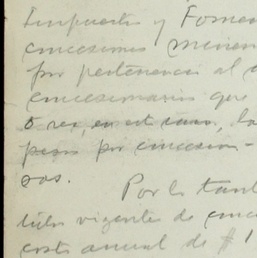 Impuestos y Fomen
concesiones mineras
por pertenencia al a
concesionario que
o sea, en este caso, la
pesos por concesion-
sos.
Por lo tant
título vigente de conce
costo anual de $ 1